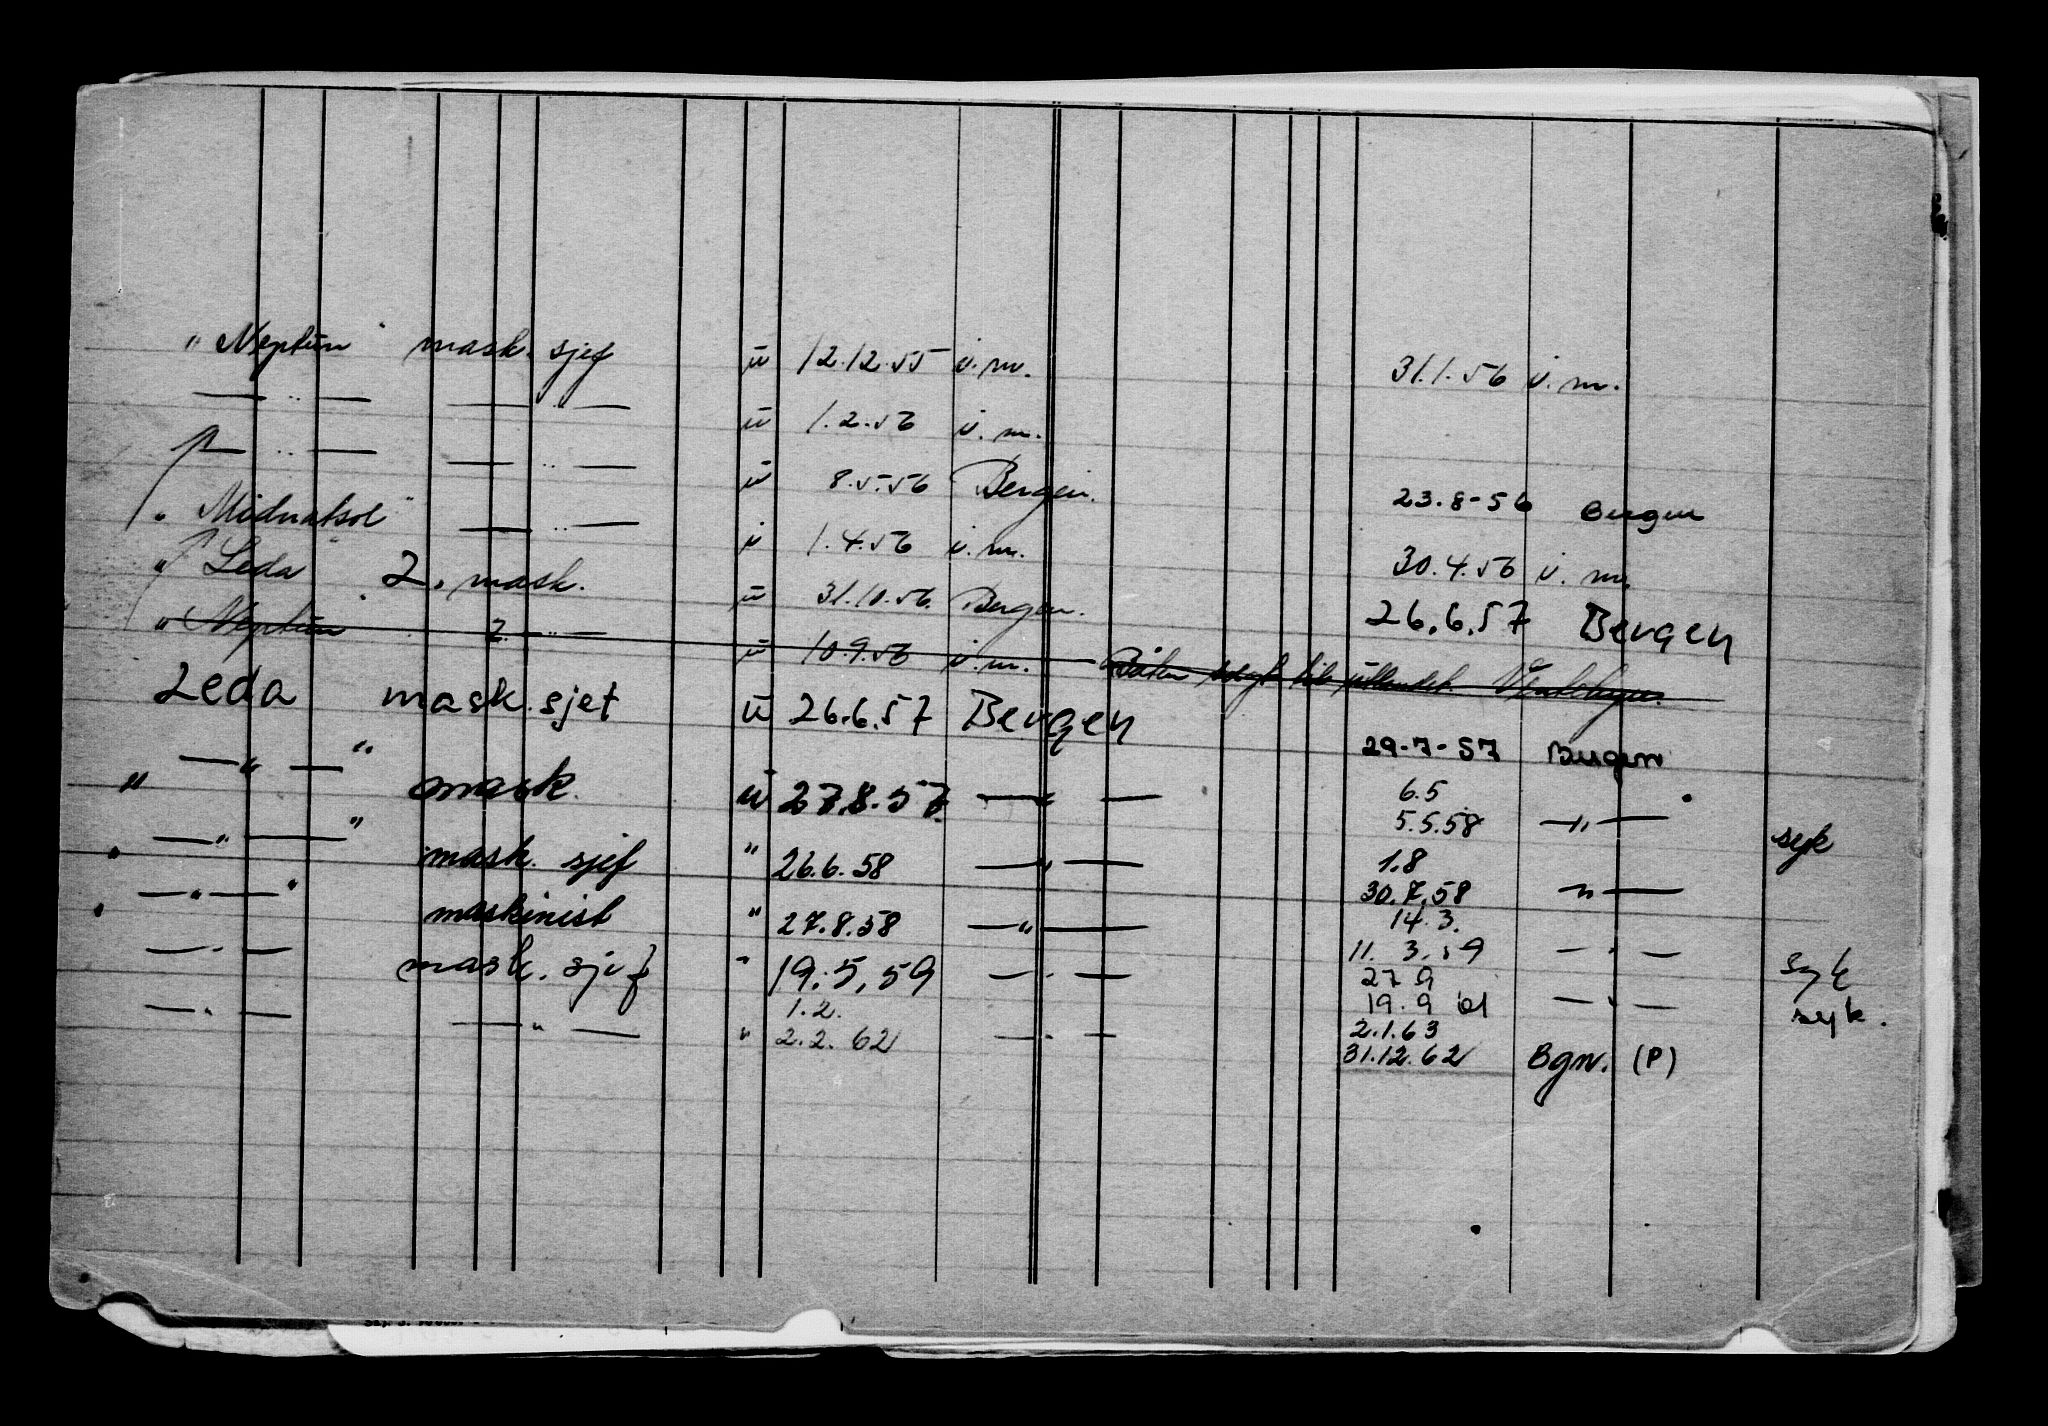 "Neptun" mask. sjef u 12.12.55 i.m. 31.1.56 i.m.
— " — — " — u 1.2.56 i.m.
— " — — " — u 8.5.56 Bergen. 23.8-56 Bergen
"Midnatsol" — " — u 1.4.56 i.m. 30.4.56 i.m.
"Leda 2. mask. u 31.10.56. Bergen. 26.6.57 Bergen
"Neptun 2. — " — u 10.9.56 i.m. Båten solgt til utlandet
Leda mask. sjef u 26.6.57 Bergen 29-7-57 Bergen
" — " — " mask. u 27.8.57. — " — 6.5
5.5.58 — " — syk
" — " — " mask. sjef " 26.6.58 — " — 1.8
30.7.58 — " —
" — " — " maskinist " 27.8.58 — " — 14.3.
11.3.59 — " — syk
— " — mask. sjef " 19.5.59 — " — 27.9
19.9 61 — " — syk.
1.2. 2.1.63
— " — — " — " 2.2.62 — " — 31.12.62 Bgn. (P)